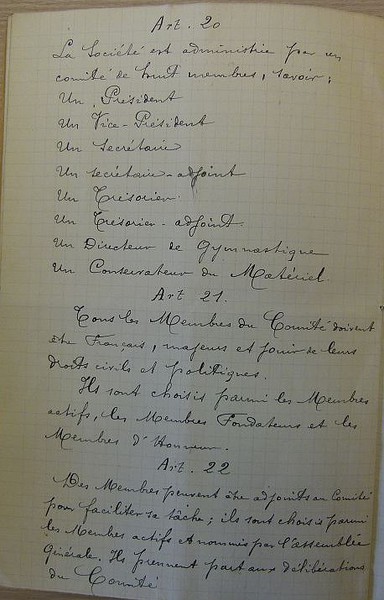 Art. 20
La Société est administrée par un
comité de huit membres, savoir;
Un Président
Un Vice-Président
Un Secrétaire
Un secrétaire-adjoint
Un Trésorier
Un Trésorier-adjoint
Un Directeur de Gymnastique
Un Conservateur du Matériel
Art 21.
Tous les Membres du Comité doivent
être Français, majeurs et jouir de leurs
droits civils et politiques.
Ils sont choisis parmi les Membres
actifs, les Membres Fondateurs et les
Membres d'Honneur.
Art. 22
Des Membres peuvent être adjoints au Comité
pour faciliter sa tâche; ils sont choisis parmi
les Membres actifs et nommés par l'assemblée
Générale. Ils prennent part aux délibérations
du Comité